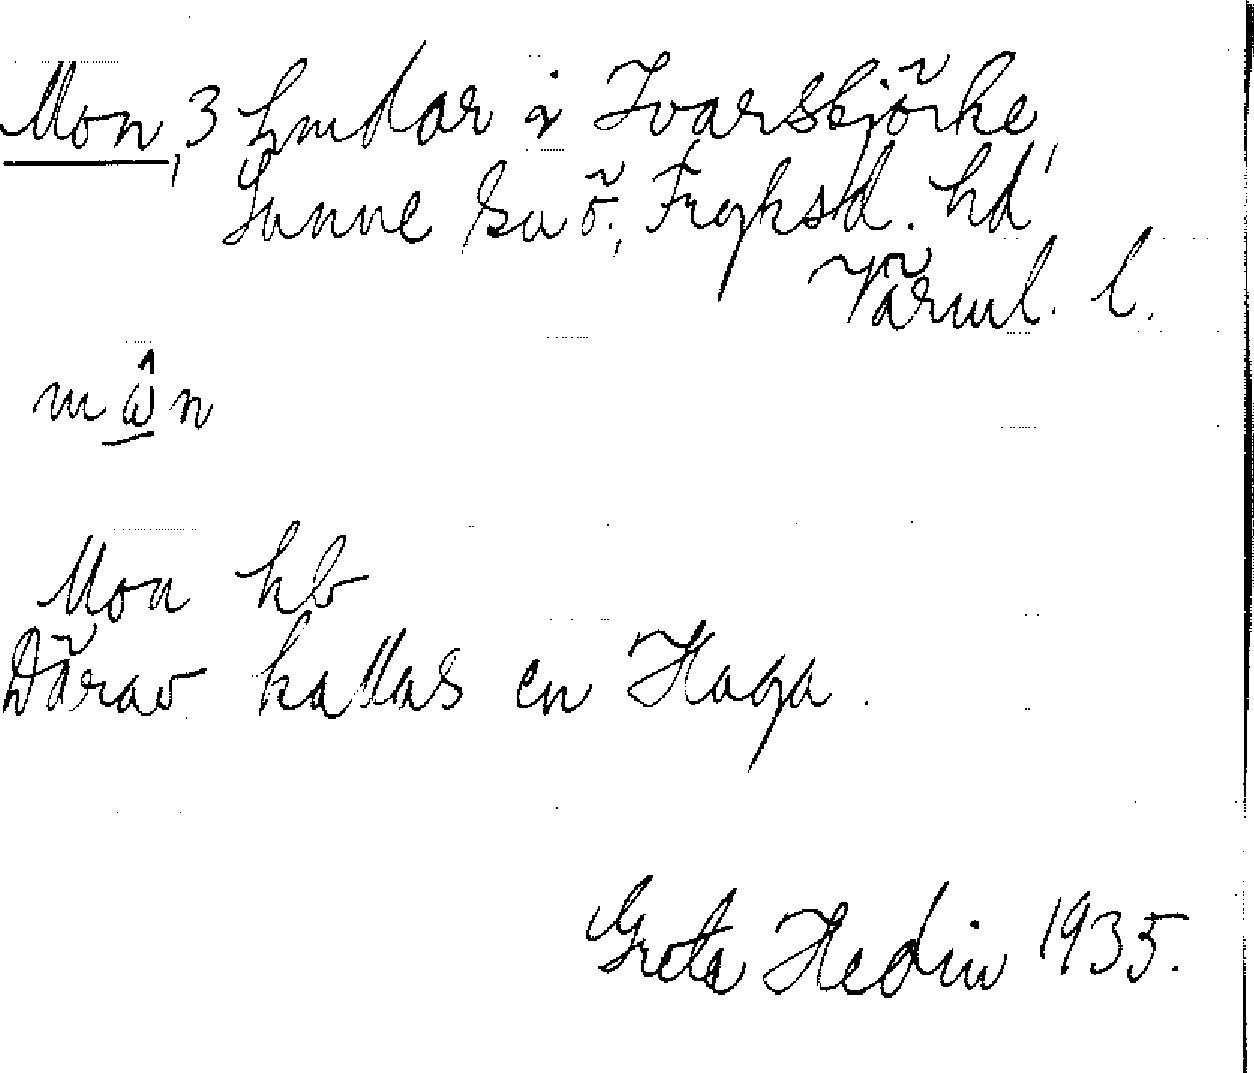 Mon, 3 hmdar i Ivarsbjörke,
Sunne sn ö., Fryksd. hd
Värml. l.
mω̂n
Mon hb
Därav kallas en Haga.
Greta Hedin 1935.